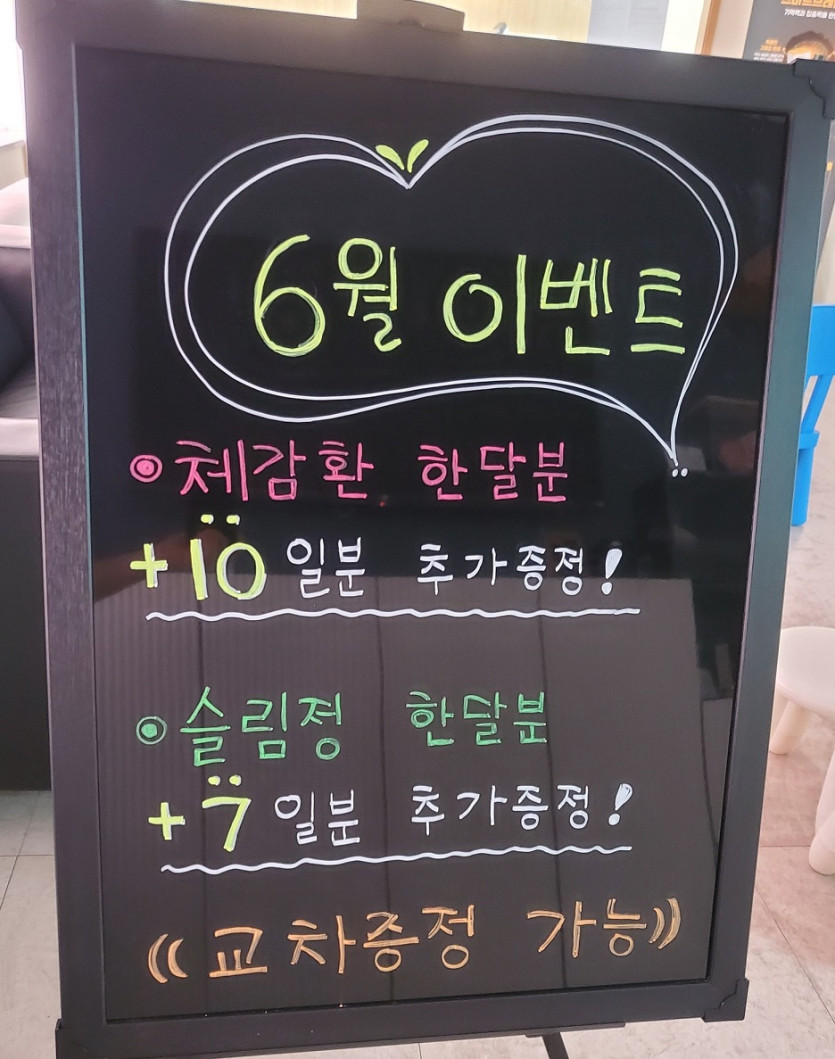 6월 이벤트
체감환 한달분
+10일분 추가증정!
슬림정 한달분
+7일분 추가증정!
((교차증정 가능))